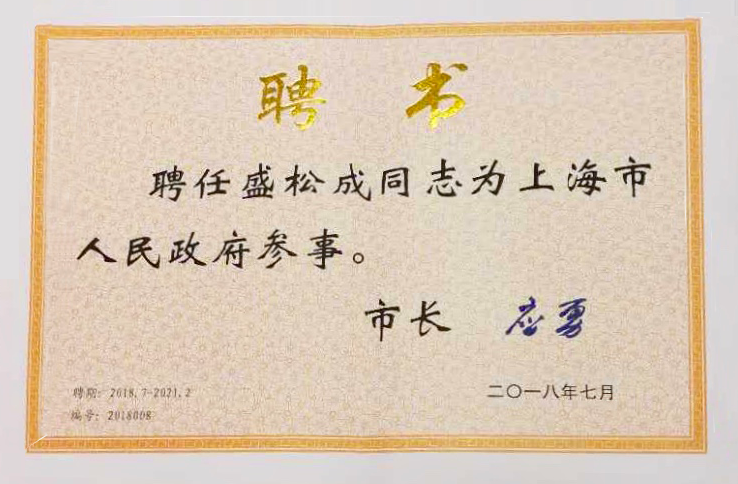 聘书
聘任盛松成同志为上海市
人民政府参事。
市长 应勇
聘期：2018.7-2021.2
二〇一八年七月
编号：2018008